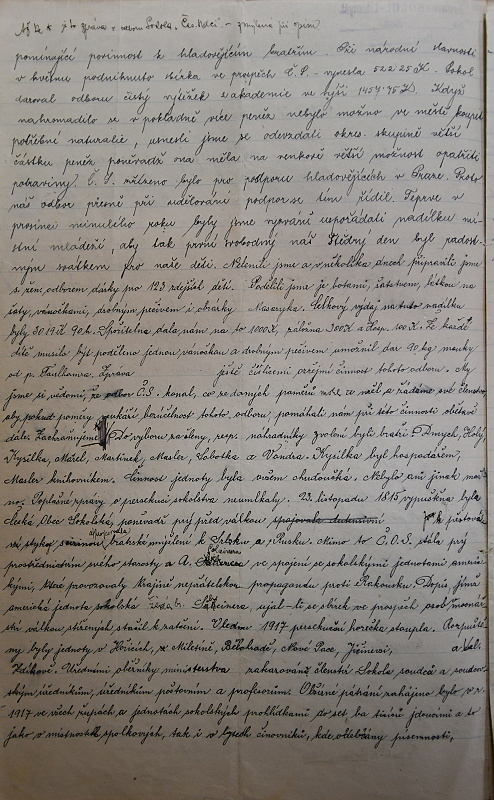 pomínající povinnost k hladovějícím bratřím. Při národní slavnosti
v květnu podniknuta sbírka ve prospěch Č. S. - vynesla 522 25 K. Sokol
daroval odboru čistý výtěžek z akademie ve výši 1454.45 K. Když
nahromadilo se v pokladně více peněz nebylo možno ve městě koupit
potřebné naturalie, usnesli jsme se odevzdati okres. skupině větší
částku peněz poněvadž ona měla na venkově větší možnost opatřiti
potraviny. Č. S. zřízeno bylo pro podporu hladovějících v Praze. Proto
náš odbor přesně při udělování podpor se tím řídil. Teprve v
prosinci minulého roku byly jsme vyzváni uspořádati nadílku mí-
stní mládeži, aby tak první svobodný náš Štědrý den byl radost-
ným svátkem pro naše děti. Nelenili jsme a v několika dnech připravili jsme
s žen. odborem dárky pro 123 zdejších dětí. Podělili jsme je botami, šatstvem, látkou na
šaty, vánočkami, drobným pečivem i obrázky Masaryka. Celkový výdaj na tuto nadílku
byl 3019 K 90 h. Spořitelna dala nám na to 1000 K, záložna 300 K a Hosp. 100 K. Že každé
dítě musilo být poděleno jednou vánočkou a drobným pečivem umožnil dar 90 kg mouky
od p. Faulhamra. Zpráva jistě čišťěmi zřejmí činnost tohoto odboru. My
jsme si vědomi, že odbor Č. S. konal, co za daných poměrů mohl, a žádáme své členstvo
aby pokud poměry ukáží bezúčelnost tohoto odboru pomáhali nám při této činnosti obětavě
dále. Zachraňujme! Do výboru zasílány, resp. náhradníky zvoleni byli bratři: Dmych, Holý,
Kysilka, Mařel, Martínek, Masler, Sobotka a Vondra. Kysilka byl hospodářem,
Masler knihovníkem. Činnost jednoty byla ovšem chudoučká. Nebylo ani jinak mož-
no. Poplašné zprávy o persekuci sokolstva neumlkaly. 23. listopadu 1815 rozpuštěna byla
Česká Obec Sokolská, poněvadž prý před válkou pěstova-
la styky bratrské smýšlení k Srbsku a Rusku. Mimo to Č. O. S. stála prý
prostřednictvím svého starosty a A. ve spojení se sokolskými jednotami americ-
kými, které provozovaly krajně nepřátelskou propagandu proti Rakousku. Dopis, jímž
americká jednota sokolská žádá, by ujal-li se sbírek ve prospěch osob
válkou stižených stačil k zatčení. V lednu 1917 persekuční horečka stoupla. Rozpuště-
ny byly jednoty v Hořicích, v Miletíně, Bělohradě, Nové Pace, Jičíněvsi, a Val.
Zdíkově. Úředními oběžníky ministerstva zakazováno členství Sokola soudců a soudov-
ským úředníkům, úředníkům poštovním a profesorům. Obšírné pátrání zahájeno bylo v r.
1917 ve všech župách a jednotách sokolských prohlídkami do set, ba tisíců jdoucími a to
jako v místnostech spolkových, tak i v bytech činovníků, kde odebrány písemnosti,